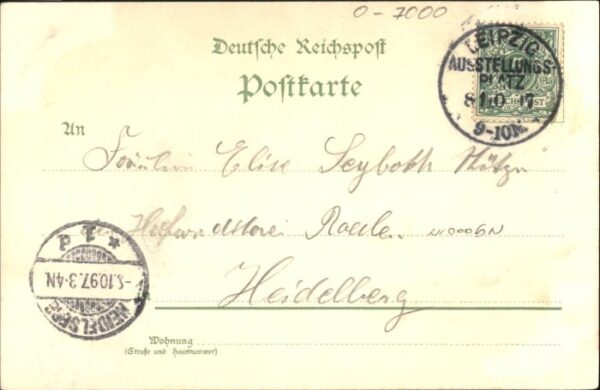 0-7000
Deutsche Reichspost
Postkarte
LEIPZIG
AUSSTELLUNGS-
PLATZ
8 10 97
9-10N.
An
Fräulein Elise Seyboth
Heidelberg
HEIDELBERG
-8.10.97.3-4N
* 1 d
Wohnung
(Straße und Hausnummer)